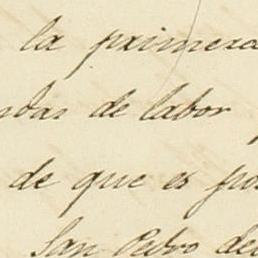 la primera
de labor
de que es
San Pedro del